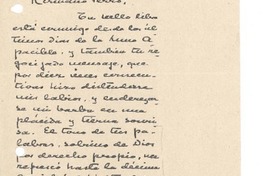 Hermano Pedro:
Tu bello libro
está conmigo desde los úl
timos días de la Luna A
pacible, y también tu re
gocijado mensaje, que
por diez veces consecu
tivas hizo distenderse
mis labios, y enderezar
se mi barba en una
plácida y tierna sonri
sa. El tono de tus pa
labras, sobrino de Dios
por derecho propio, re
percutió hasta la décima